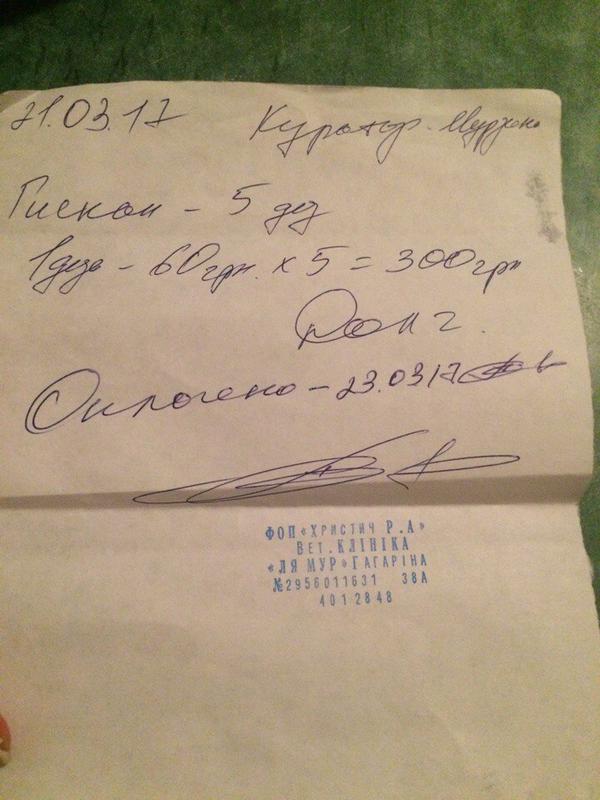 21.03.17 Куратор
Гискан - 5 доз
1 доза - 60 грн. x 5 = 300 грн
Оплачено - 23.03.17
ФОП «ХРИСТИЧ Р.А»
ВЕТ.КЛІНІКА
«ЛЯ МУР» ГАГАРІНА
№2956011631 38А
4012848